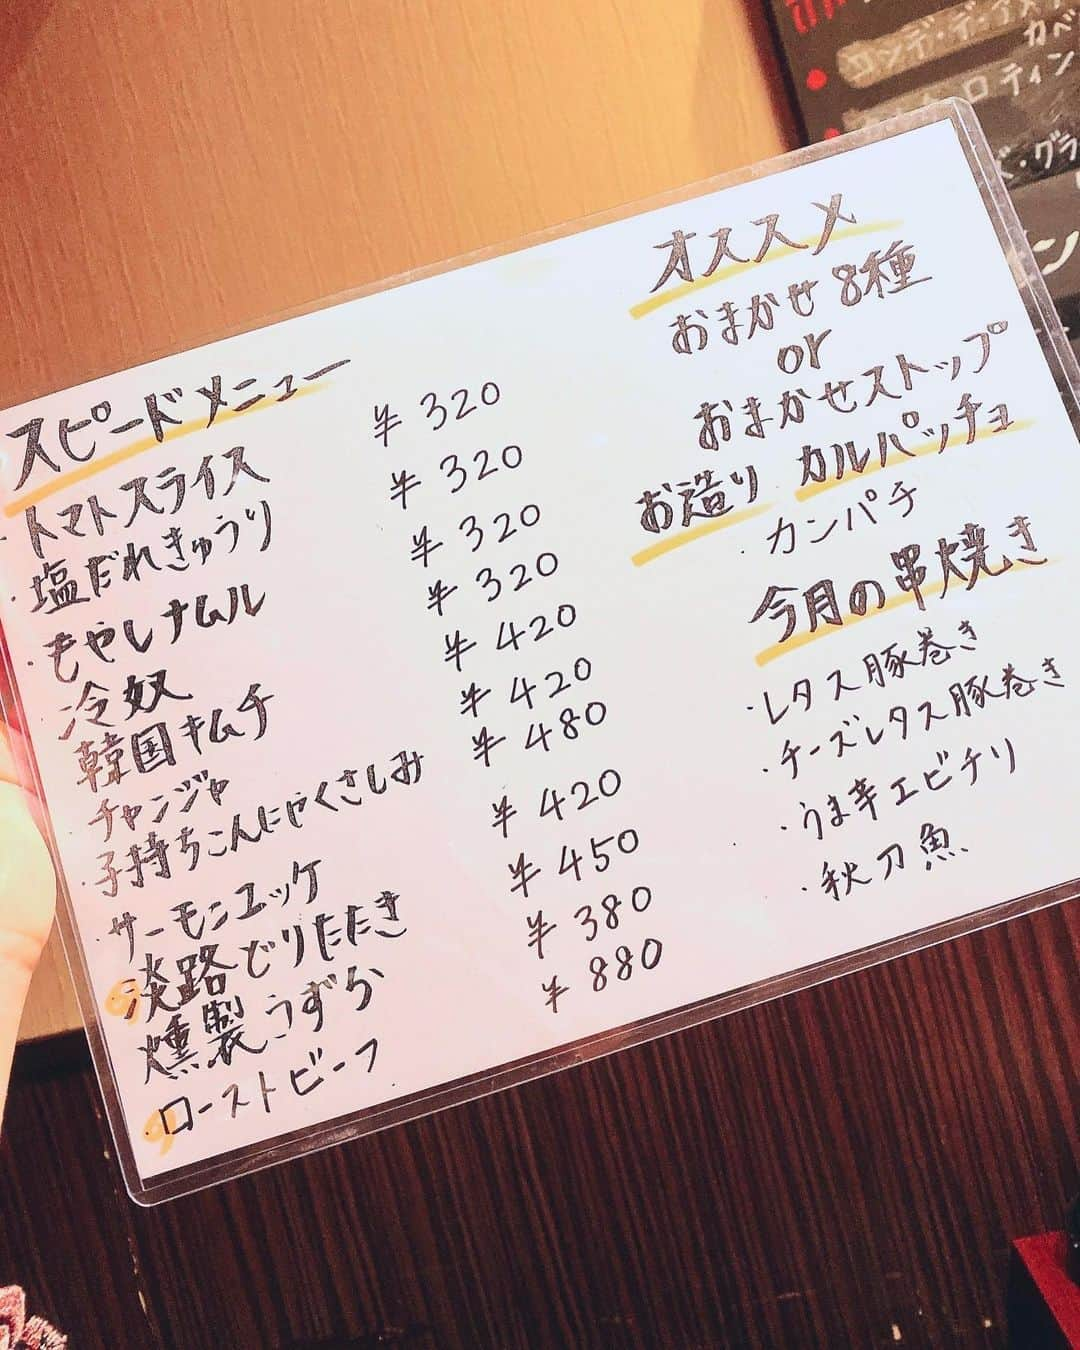 スピードメニュー
・トマトスライス ¥320
・塩だれきゅうり ¥320
・もやしナムル ¥320
冷奴 ¥320
韓国キムチ ¥420
チャンジャ ¥420
・子持ちこんにゃくさしみ ¥480
・サーモンユッケ ¥420
淡路どりたたき ¥450
燻製うずら ¥380
ローストビーフ ¥880
オススメ
おまかせ8種
or
おまかせストップ
お造り カルパッチョ
・カンパチ
今月の串焼き
・レタス豚巻き
・チーズレタス豚巻き
・うま辛エビチリ
・秋刀魚